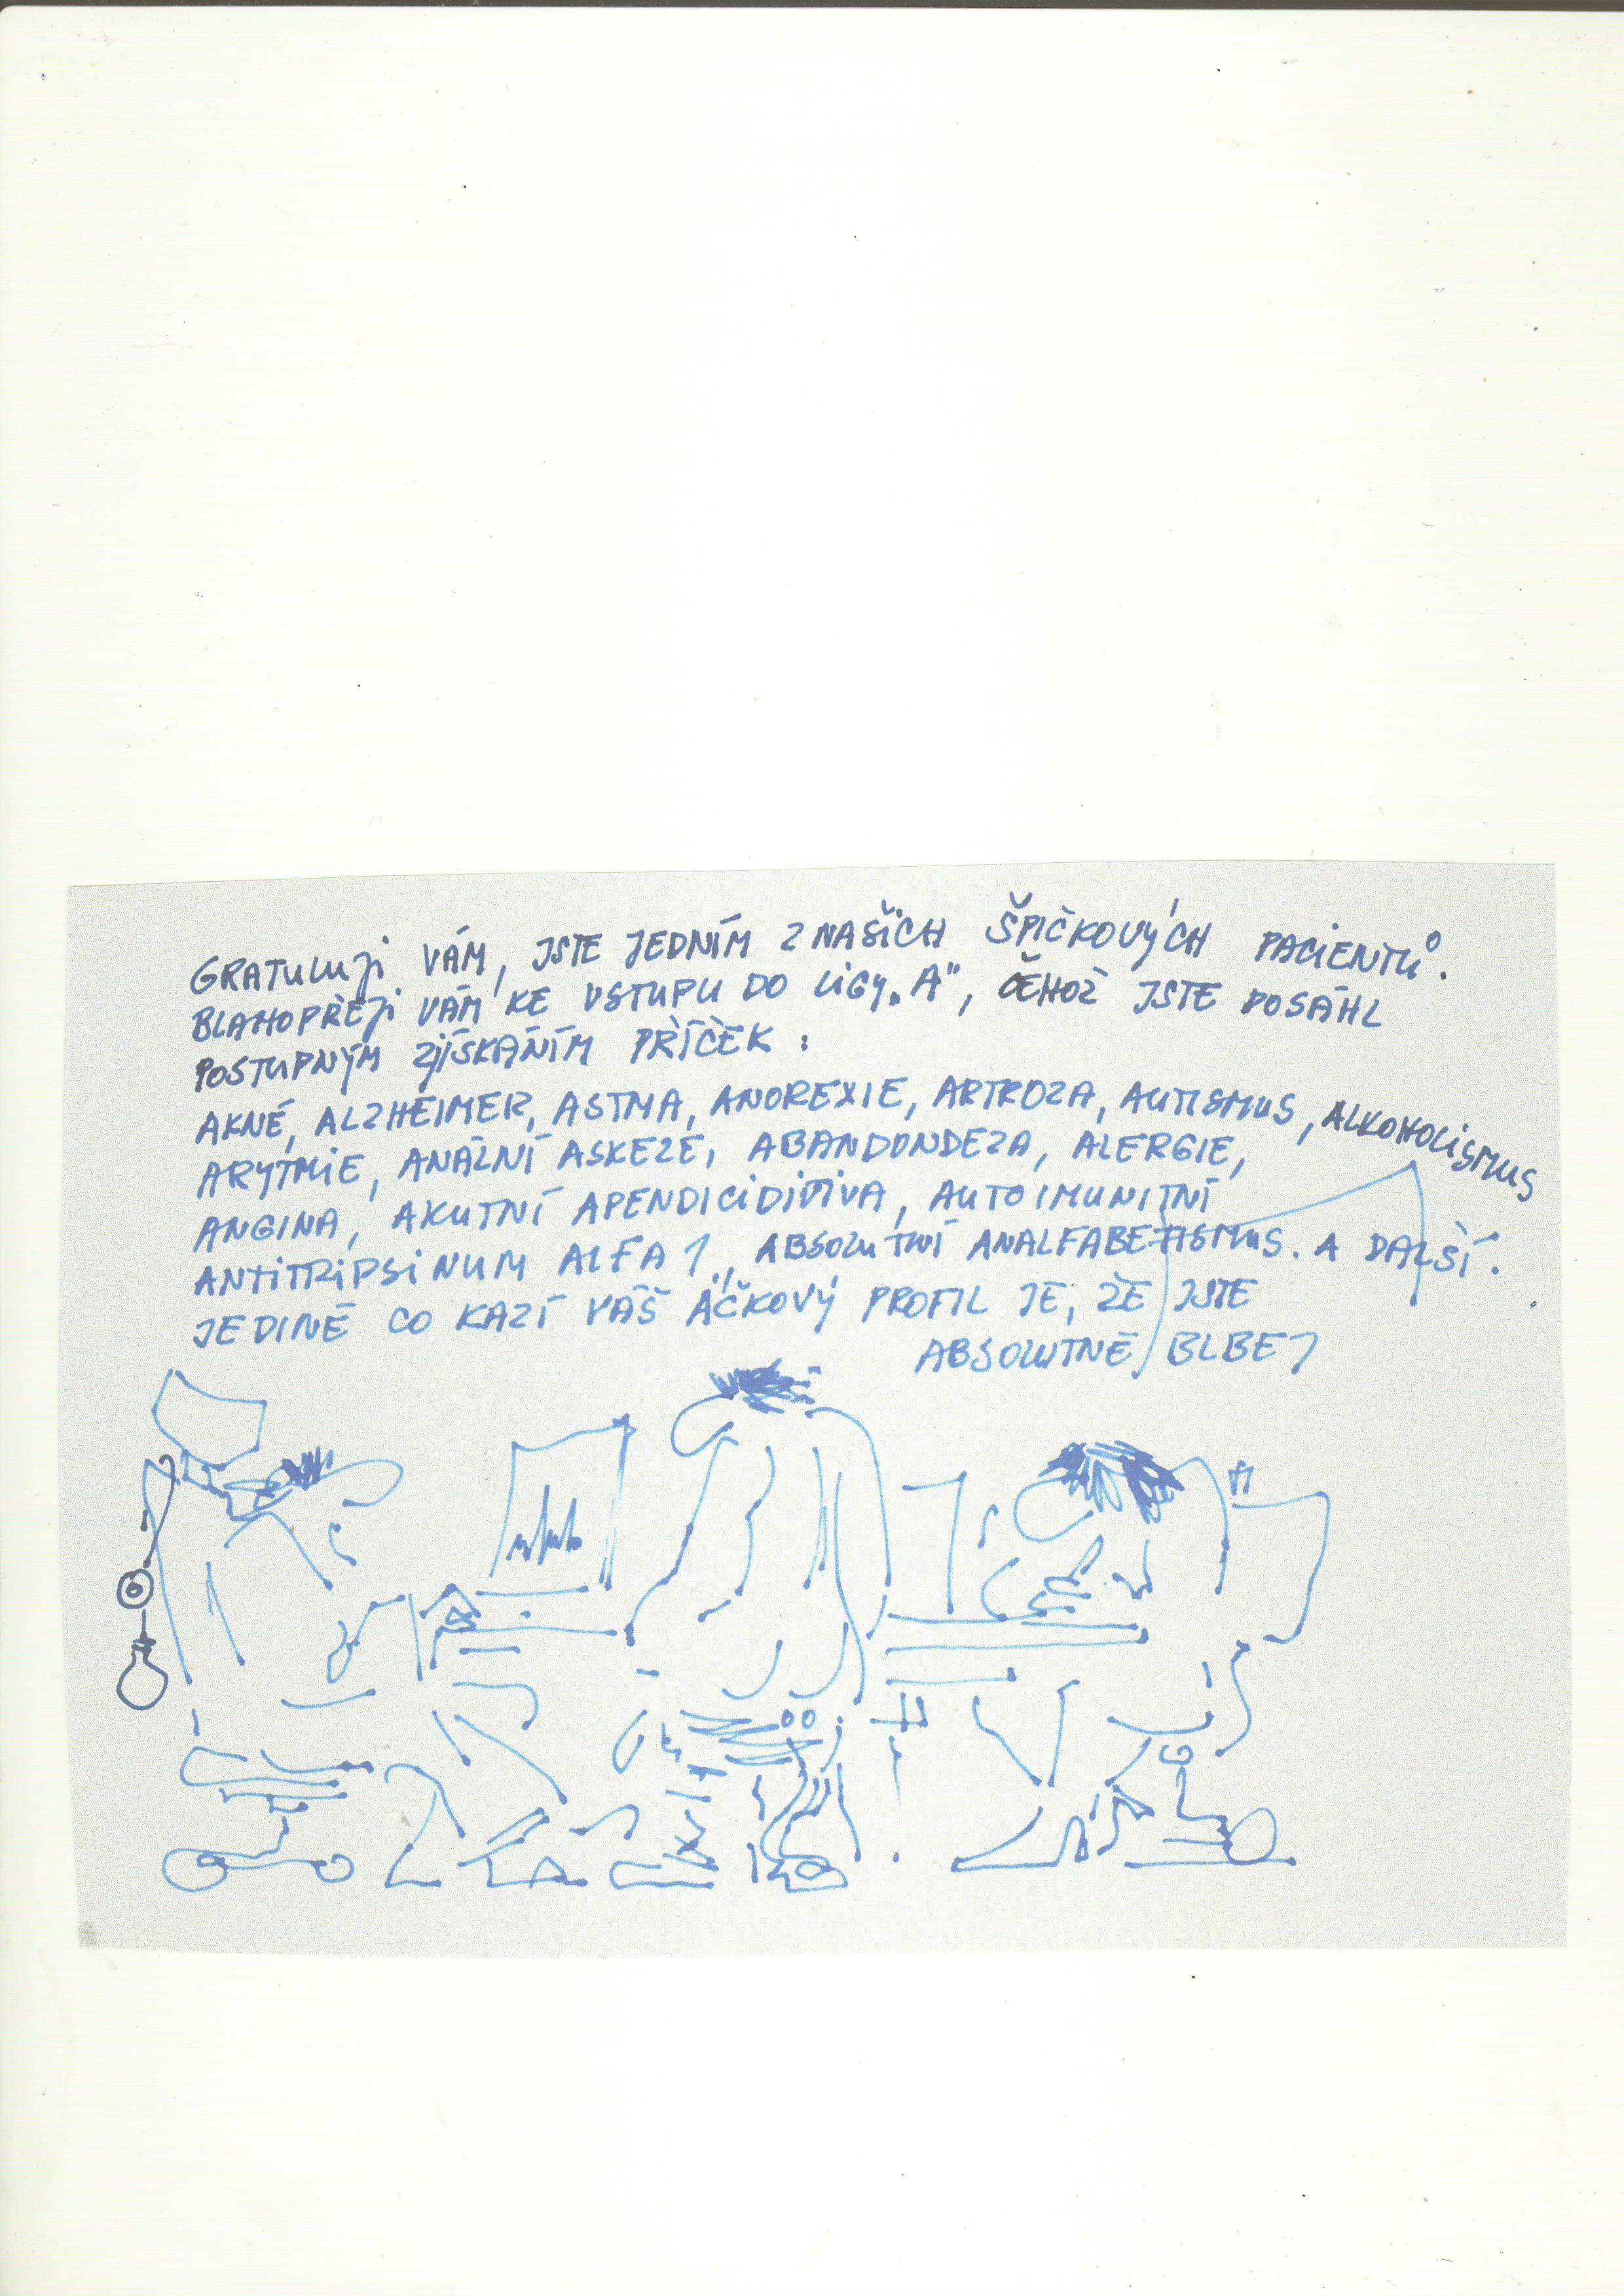 GRATULUJI VÁM, JSTE JEDNÍM Z NAŠICH ŠPIČKOVÝCH PACIENTŮ.
BLAHOPŘEJI VÁM KE VSTUPU DO LIGY „A", ČEHOŽ JSTE DOSÁHL
POSTUPNÝM ZÍSKÁNÍM PŘÍČEK:
AKNÉ, ALZHEIMER, ASTMA, ANOREXIE, ARTROZA, AUTISMUS, ALKOHOLISMUS
ARYTMIE, ANÁLNÍ ASKEZE, ABANDONDEZA, ALERGIE,
ANGINA, AKUTNÍ APENDICIDITIVA, AUTOIMUNITNÍ
ANTITRIPSINUM ALFA 1, ABSOLUTNÍ ANALFABETISMUS. A DALŠÍ.
JEDINÉ CO KAZÍ VÁŠ ÁČKOVÝ PROFIL JE, ŽE JSTE
ABSOLUTNĚ BLBEJ